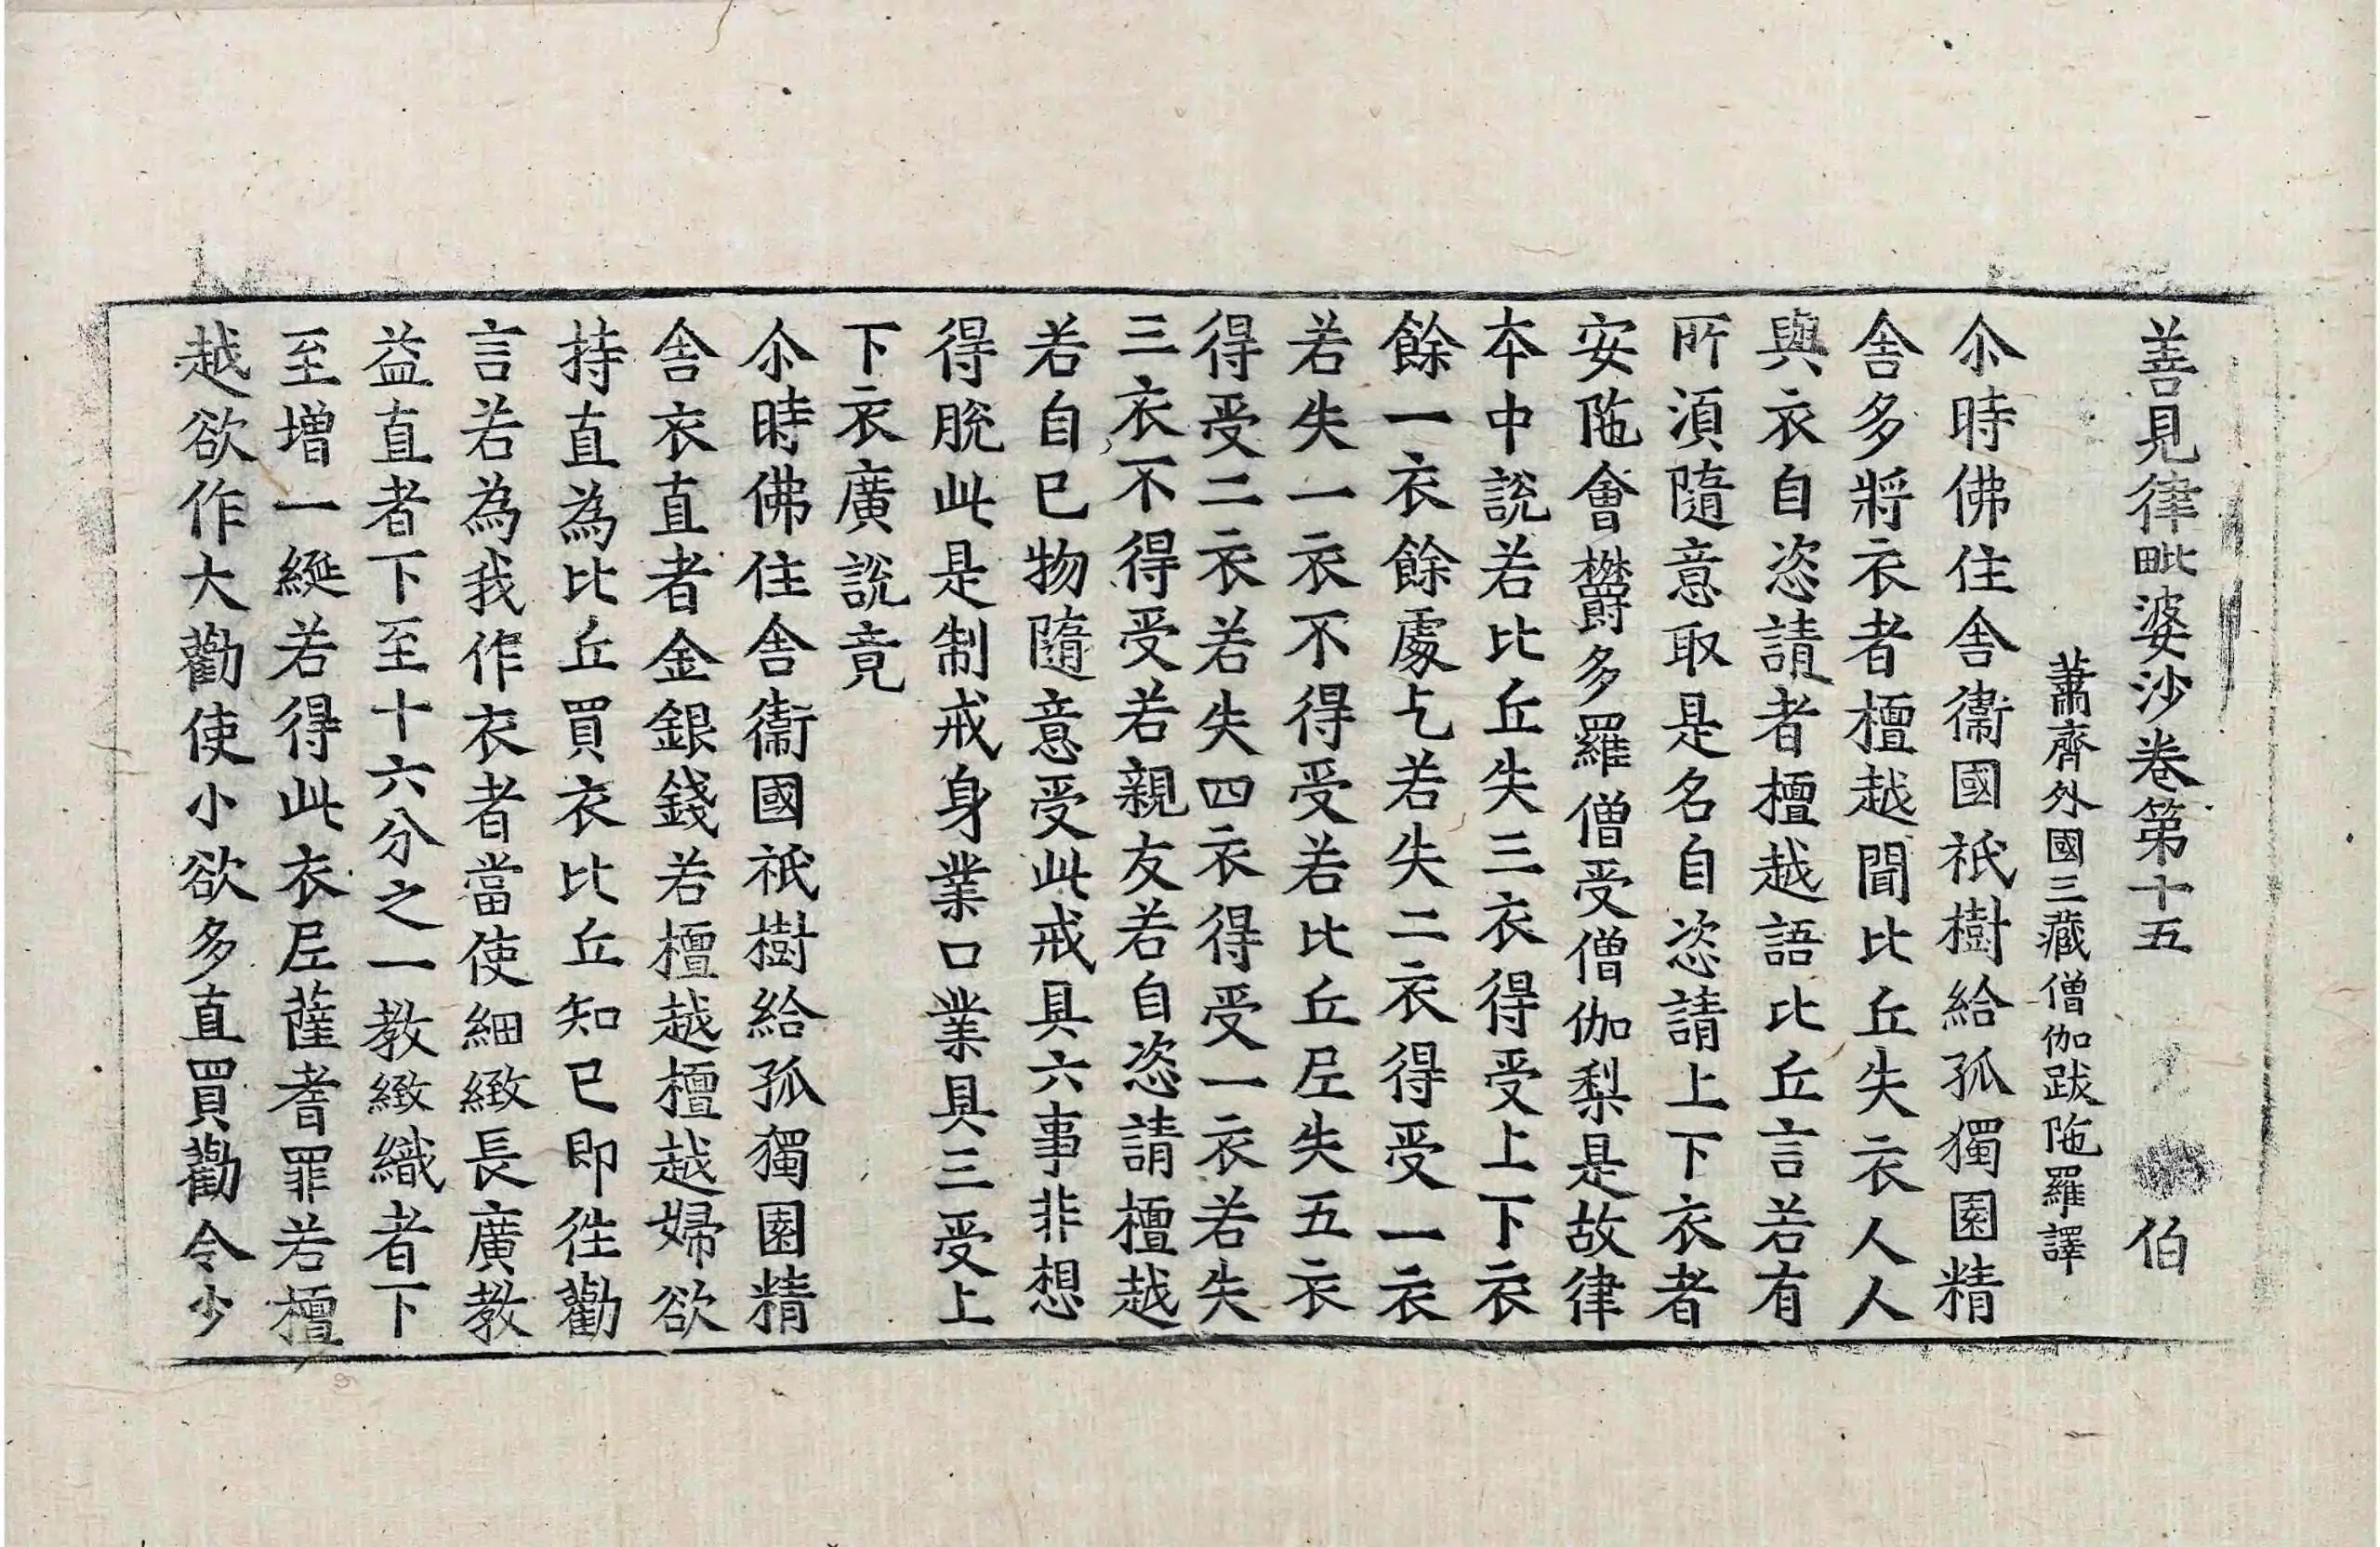 善見律毗婆沙卷第十五 伯
蕭齊外國三藏僧伽跋陁羅譯
尒時佛住舍衞國祇樹給孤獨園精
舍多將衣者檀越聞比丘失衣人人
與衣自恣請者檀越語比丘言若有
所湏隨意取是名自恣請上下衣者
安陁會欝多羅僧受僧伽梨是故律
本中說若比丘失三衣得受上下衣
餘一衣餘處乞若失二衣得受一衣
若失一衣不得受若比丘尼失五衣
得受二衣若失四衣得受一衣若失
三衣不得受若親友若自恣請檀越
若自己物隨意受此戒具六事非想
得脫此是制戒身業口業具三受上
下衣廣說竟
尒時佛住舍衞國祇樹給孤獨園精
舍衣直者金銀錢若檀越檀越婦欲
持直為比丘買衣比丘知已即往勸
言若為我作衣者當使細緻長廣教
益直者下至十六分之一教緻織者下
至增一綖若得此衣尼薩耆罪若檀
越欲作大勸使小欲多直買勸令少